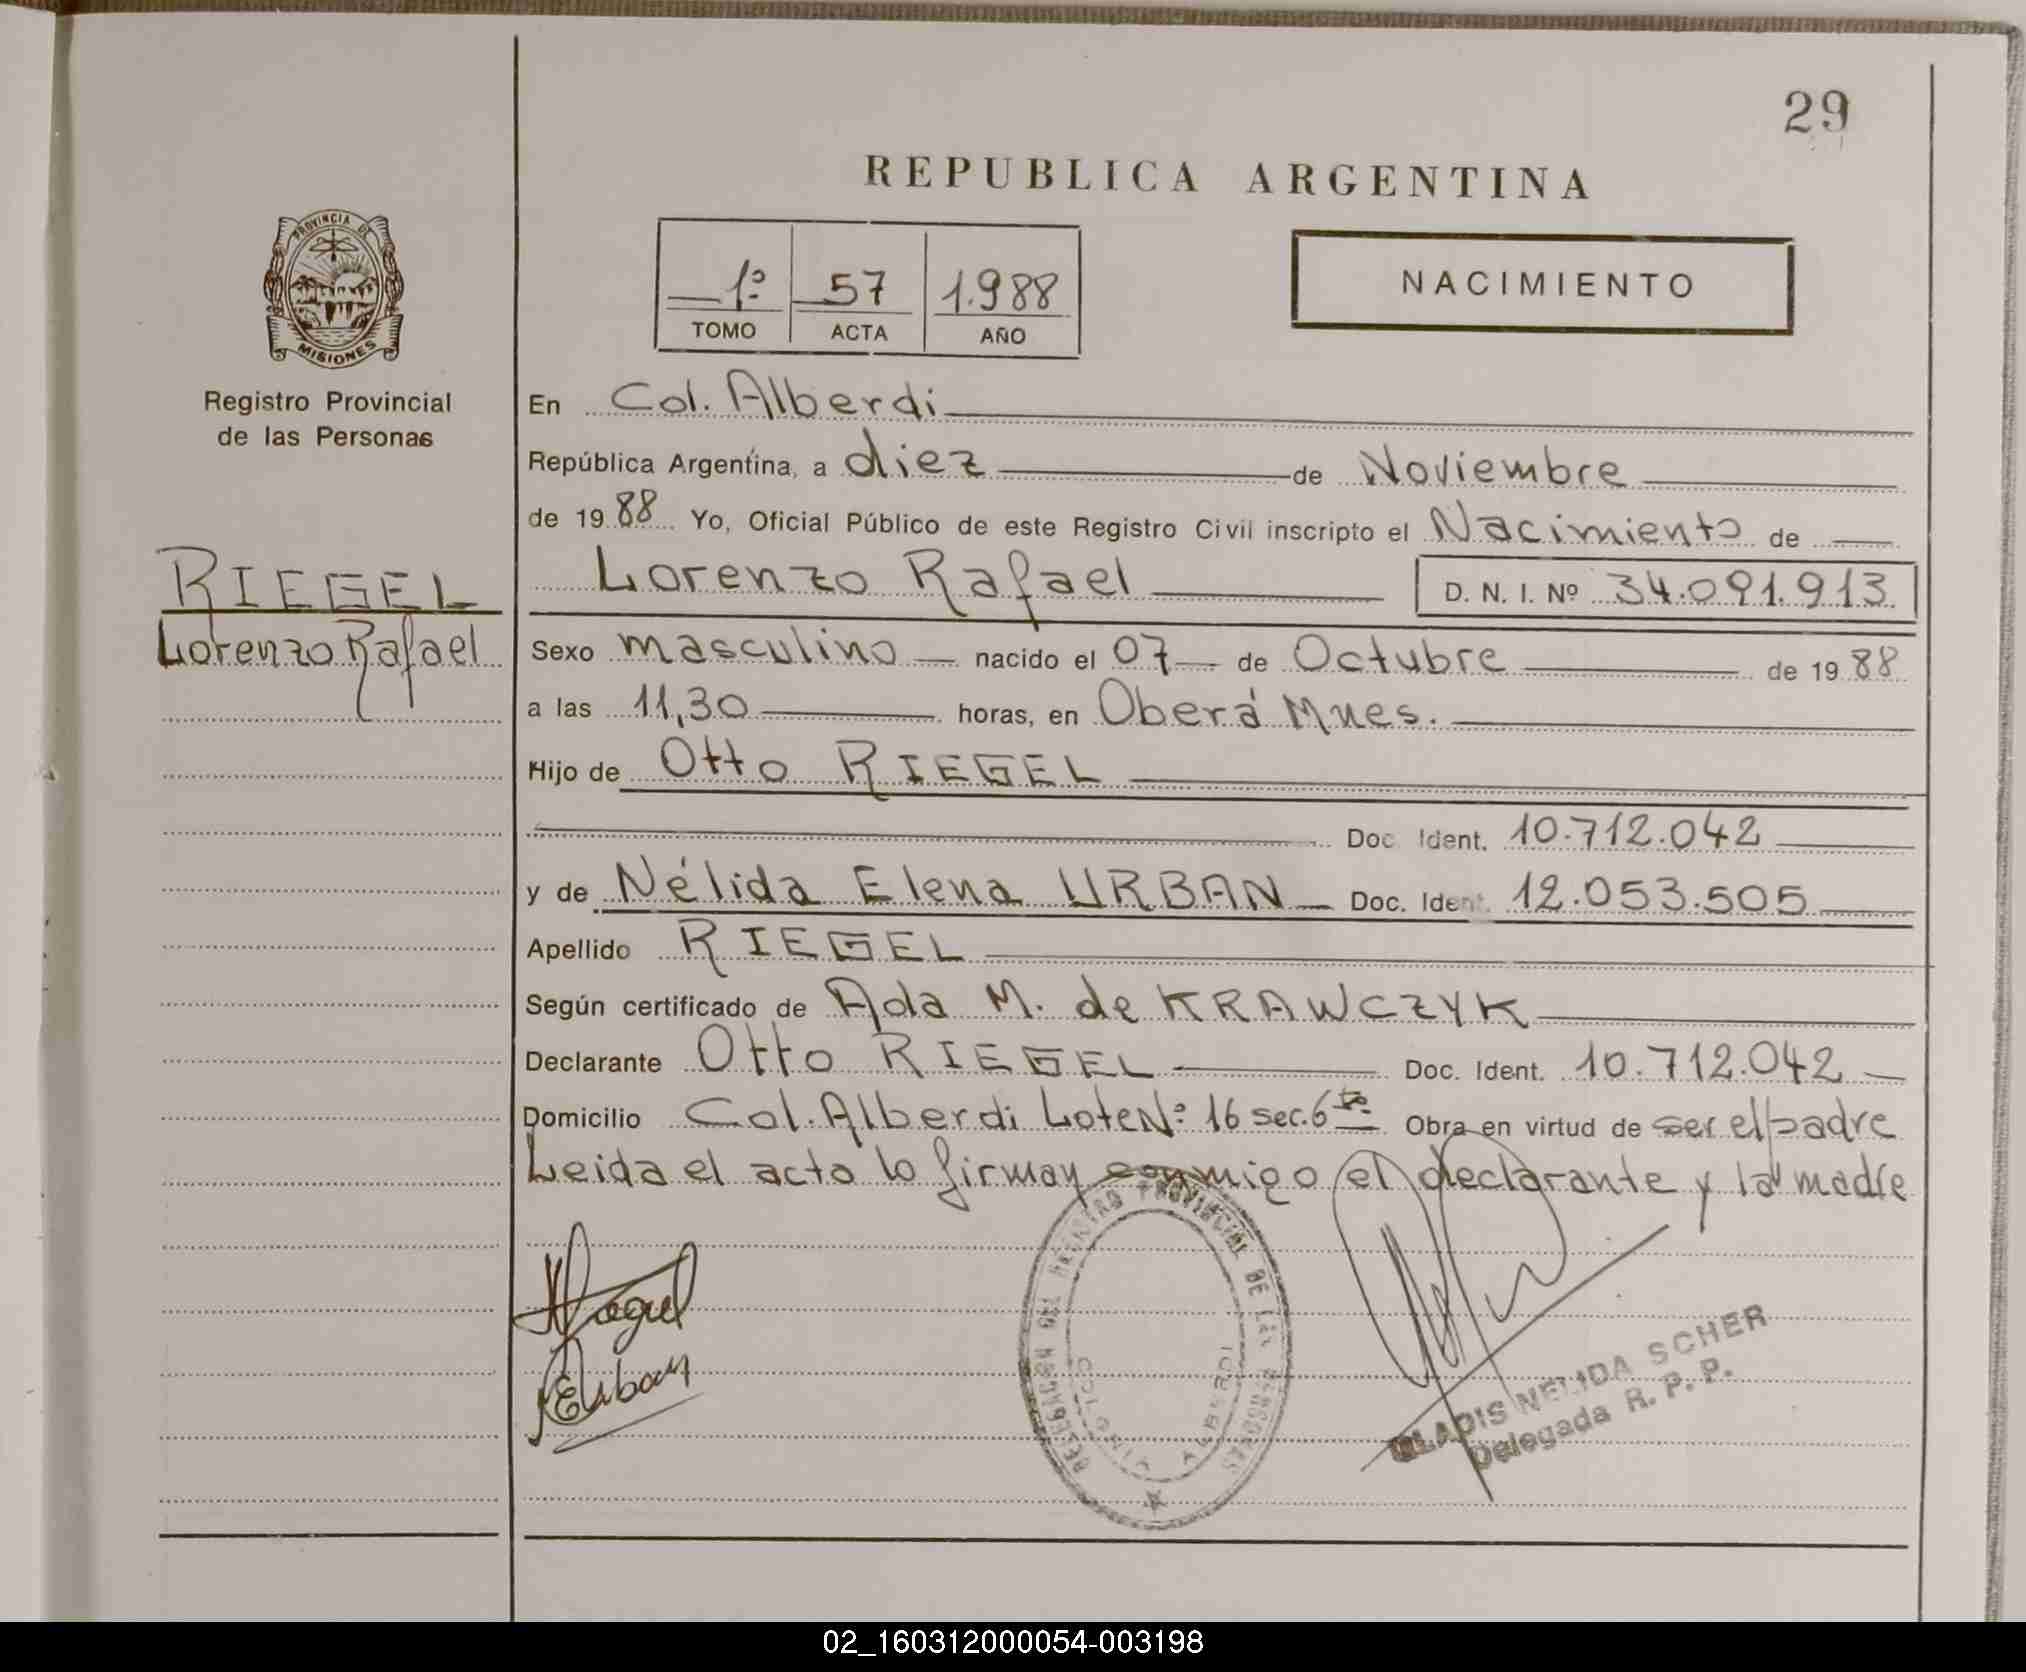 29
REPUBLICA ARGENTINA
PROVINCIA DE
MISIONES
Registro Provincial
de las Personas
1º 57 1.988
TOMO ACTA AÑO
NACIMIENTO
RIEGEL
Lorenzo Rafael
En Col. Alberdi
República Argentina, a diez de Noviembre
de 1988 Yo, Oficial Público de este Registro Civil inscripto el Nacimiento de
Lorenzo Rafael D. N. I. Nº 34.091.913
Sexo masculino nacido el 07 de Octubre de 1988
a las 11,30 horas, en Oberá Mnes.
Hijo de Otto RIEGEL
Doc. Ident. 10.712.042
y de Nélida Elena URBAN Doc. Ident. 12.053.505
Apellido RIEGEL
Según certificado de Ada M. de KRAWCZYK
Declarante Otto RIEGEL Doc. Ident. 10.712.042
Domicilio Col. Alberdi Lote Nº 16 sec. 6ta. Obra en virtud de ser el padre
Leida el acta lo firman conmigo el declarante y la madre
DEL REGISTRO PROVINCIAL DE LAS PERSONAS
COLONIA ALBERDI
GLADIS NELIDA SCHER
Delegada R. P. P.
02_160312000054-003198